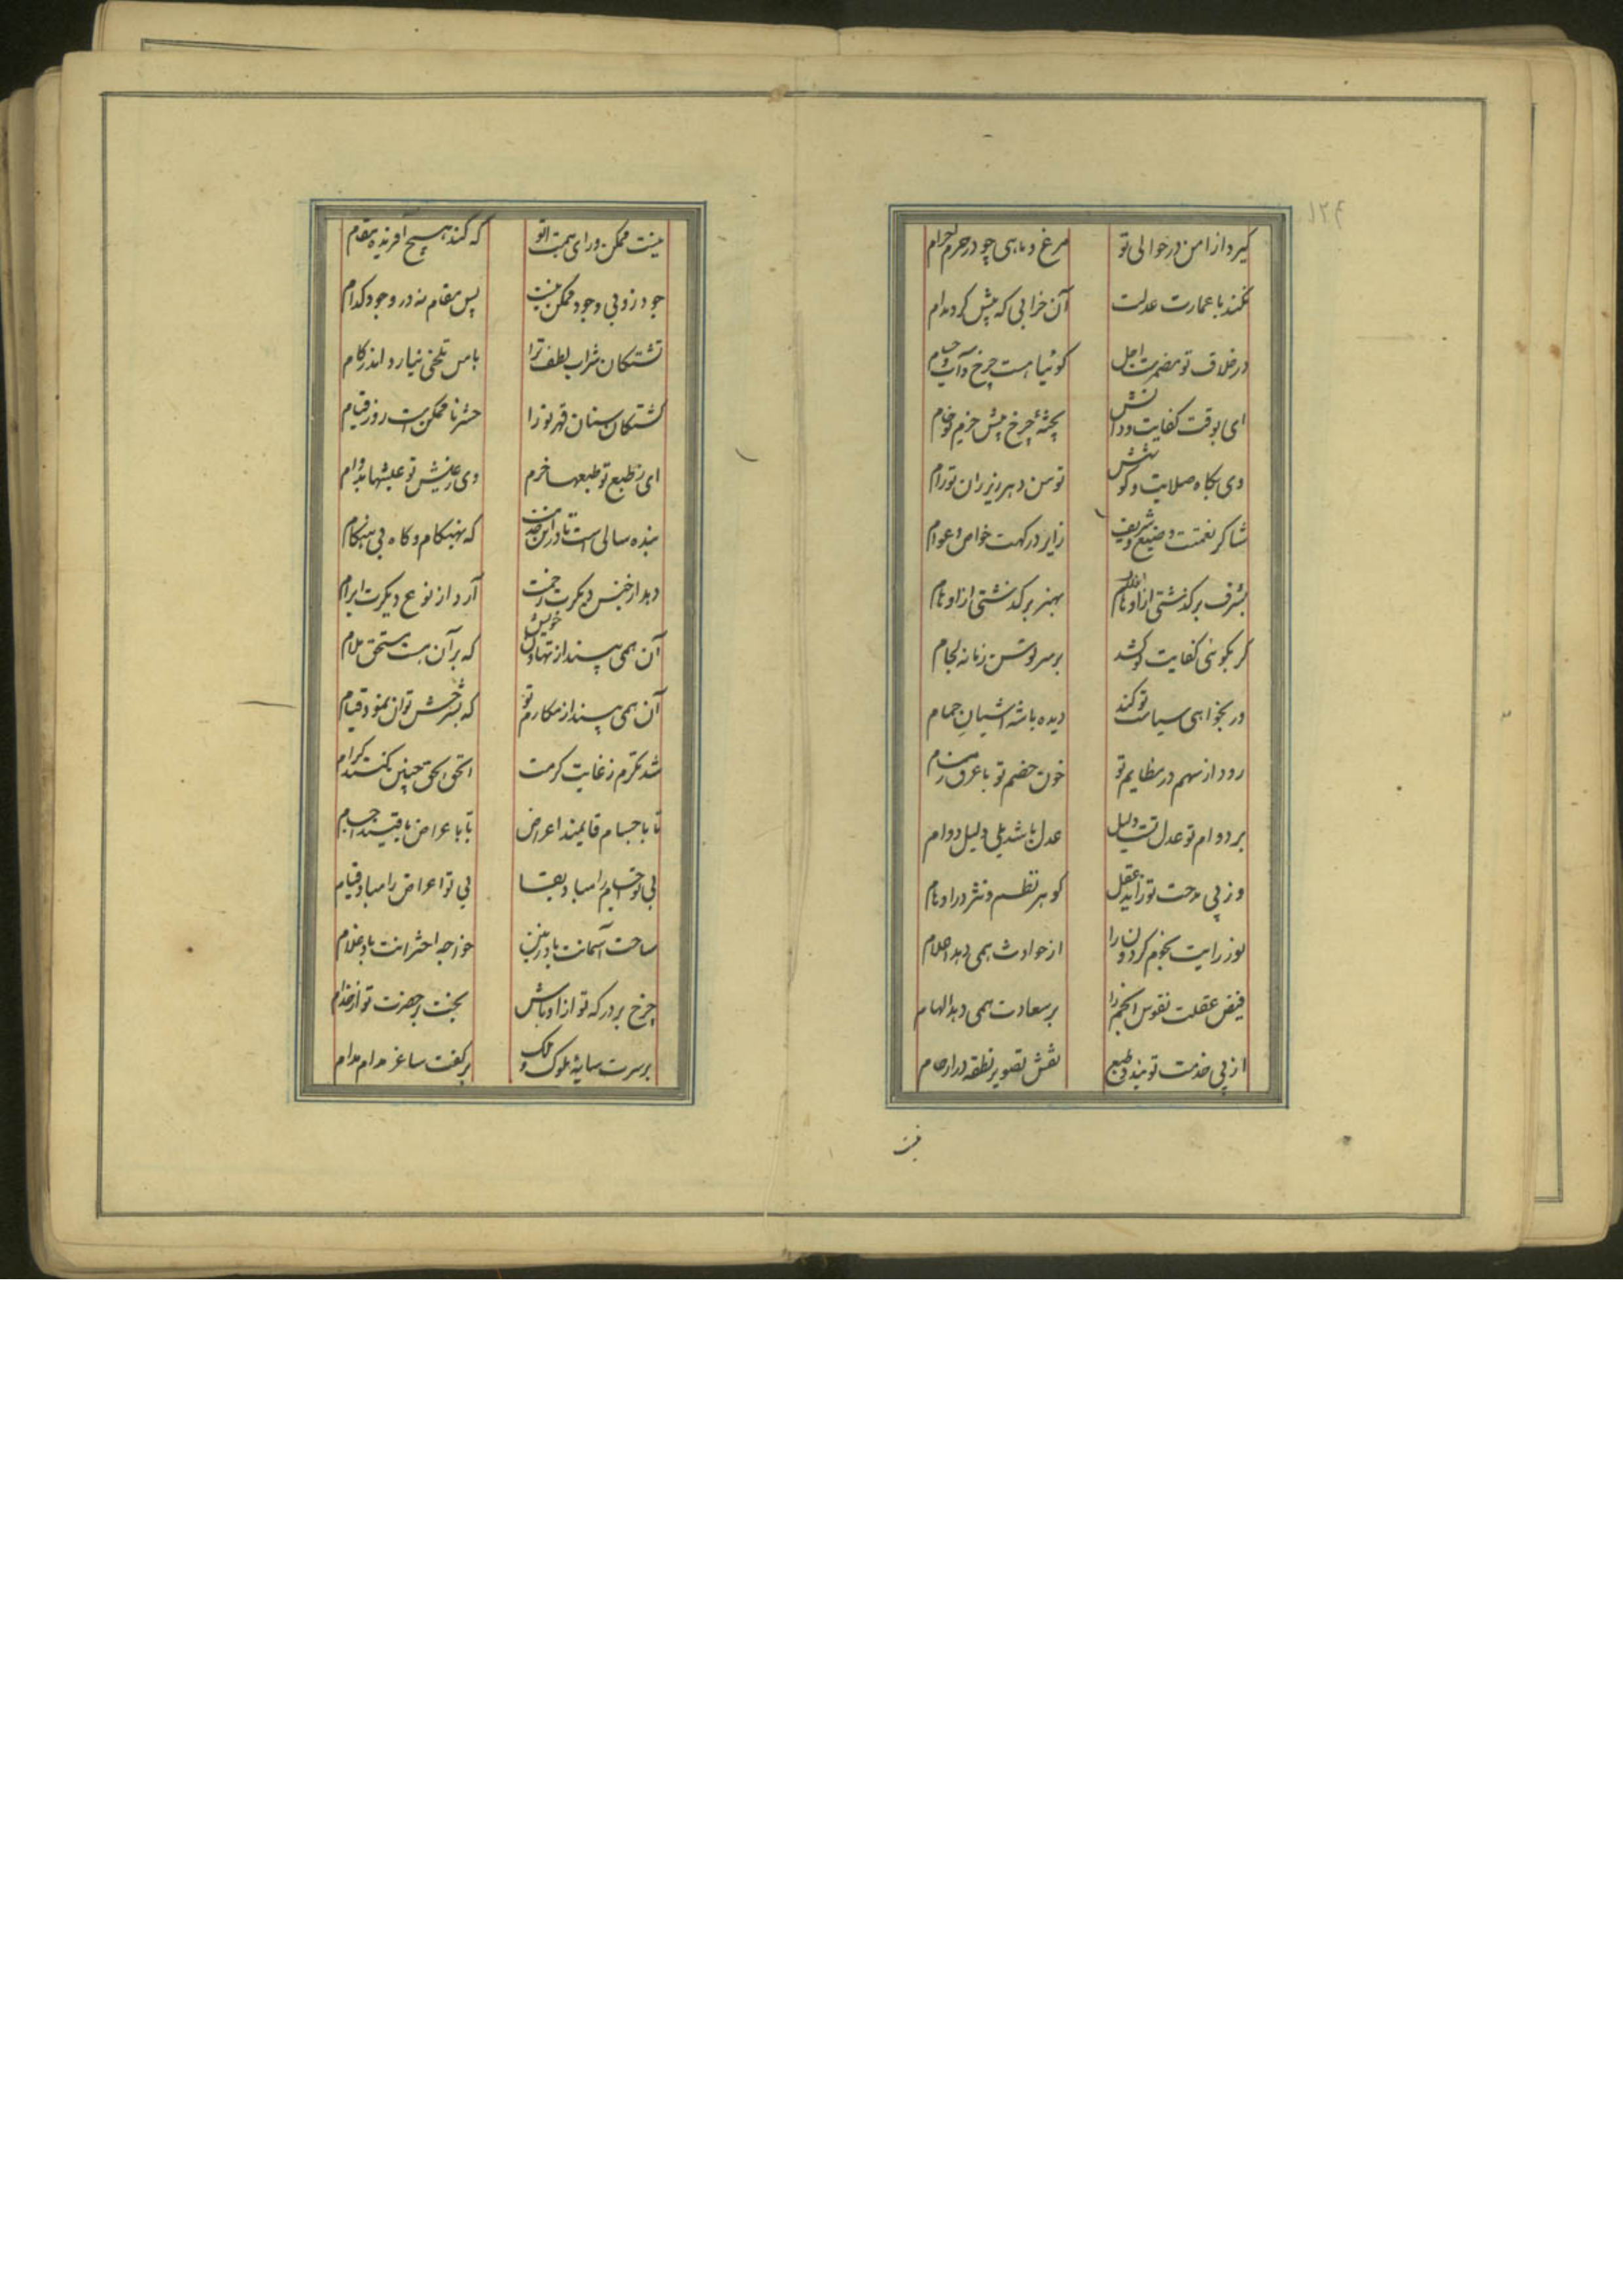 ۱۲۴
گیرد از امن در حوالی تو مرغ و ماهی چو در حرم احرام
نکند با عمارت عدلت آن خرابی که پیش کرد مدام
در خلاف تو مضمرست اجل گوئیا هست چرخ و آب و حسام
ای بوقت کفایت و دانش پختهٔ چرخ پیش حزم تو خام
وی بگاه صلابت و کوشش توسن دهر زیر ران تو رام
شاکر نعمتت وضیع و شریف زایر درگهت خواص و عوام
بشرف برگذشتی از افلاک بهنر برگذشتی از اوهام
گر بگوئی کفایت تو کشد بر سر توسن زمانه لجام
ور بخواهی سیاست تو کند دیده باشه آشیان حمام
رود از سهم در مظالم تو خون خصم تو با عرق ز مسام
بر دوام تو عدل تست دلیل عدل باشد بلی دلیل دوام
وز پی مدحت تو زاید عقل گوهر نظم و نثر در اوهام
نور رایت نجوم گردون را از حوادث همی دهد اعلام
فیض عقلت نفوس انجم را بر سعادت همی دهد الهام
از پی خدمت تو بندد طبع نقش تصویر نطفه در ارحام
نیست
نیست ممکن ورای همت تو که کند هیچ آفریده مقام
جود زو بی وجود ممکن نیست پس مقام نه در وجود کدام
تشنگان شراب لطف ترا یاس تلخی نیارد اندر کام
کشتگان سنان قهر تو را حشر ناممکن است روز قیام
ای ز طبع تو طبعها خرم وی ز عیش تو عیشها بدوام
بنده سالی است تا در این خدمت که بهنگام و گاه بی هنگام
دهد از جنس دیگرت زحمت آرد از نوع دیگرت ابرام
آن همی بیند از تهاون خویش که بر آن هست مستحق ملام
آن همی بیند از مکارم تو که بشرحش توان نمود قیام
شد مکرم ز غایت کرمت الحق الحق چنین کنند کرام
تا باجسام قایمند اعراض تا باعراض باقیند اجسام
بی تو اجسام را مباد بقا بی تو اعراض را مباد قیام
ساحت آسمانت باد زمین خواجه اخترانت باد غلام
چرخ بر درگه تو از اوباش بخت بر حضرت تو از خدام
بر سرت سایهٔ ملوک و ملک بر کفت ساغر مدام مدام